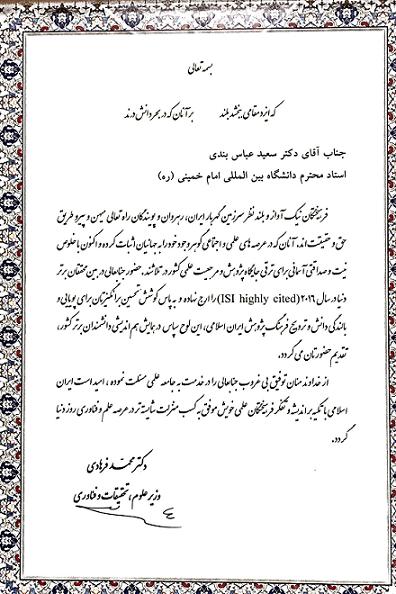 بسمه تعالی
که ایزد مقامی ببخشد بلند بر آنان که در بحر دانش درند
جناب آقای دکتر سعید عباس بندی
استاد محترم دانشگاه بین المللی امام خمینی (ره)
فرهیختگان نیک آواز و بلند نظر سرزمین گهربار ایران، رهروان و پویندگان راه تعالی میهن و پیرو طریق
حق و حقیقت اند، آنان که در عرصه های علمی و اجتماعی گوهر وجود خود را به جهانیان اثبات کرده و اکنون با خلوص
نیت و صداقتی آسمانی برای ترقی جایگاه پژوهش و مرجعیت علمی کشور در تلاشند. حضور جنابعالی در بین محققان برتر
دنیا در سال ۲۰۱۶ (ISI highly cited) را ارج نماده و به پاس کوشش تحسین برانگیزتان برای پویایی و
بالندگی دانش و ترویج فرهنگ پژوهش ایران اسلامی، این لوح سپاس در همایش هم اندیشی دانشمندان برتر کشور،
تقدیم حضورتان می گردد.
از خداوند منان توفیق بی غروب جنابعالی را در خدمت به جامعه علمی مسئلت نموده، امید است ایران
اسلامی با تکیه بر اندیشه و تفکر فرهیختگان علمی خویش موفق به کسب منزلت شایسته تر در عرصه علم و فناوری روز دنیا
گردد.
دکتر محمد فرهادی
وزیر علوم، تحقیقات و فناوری